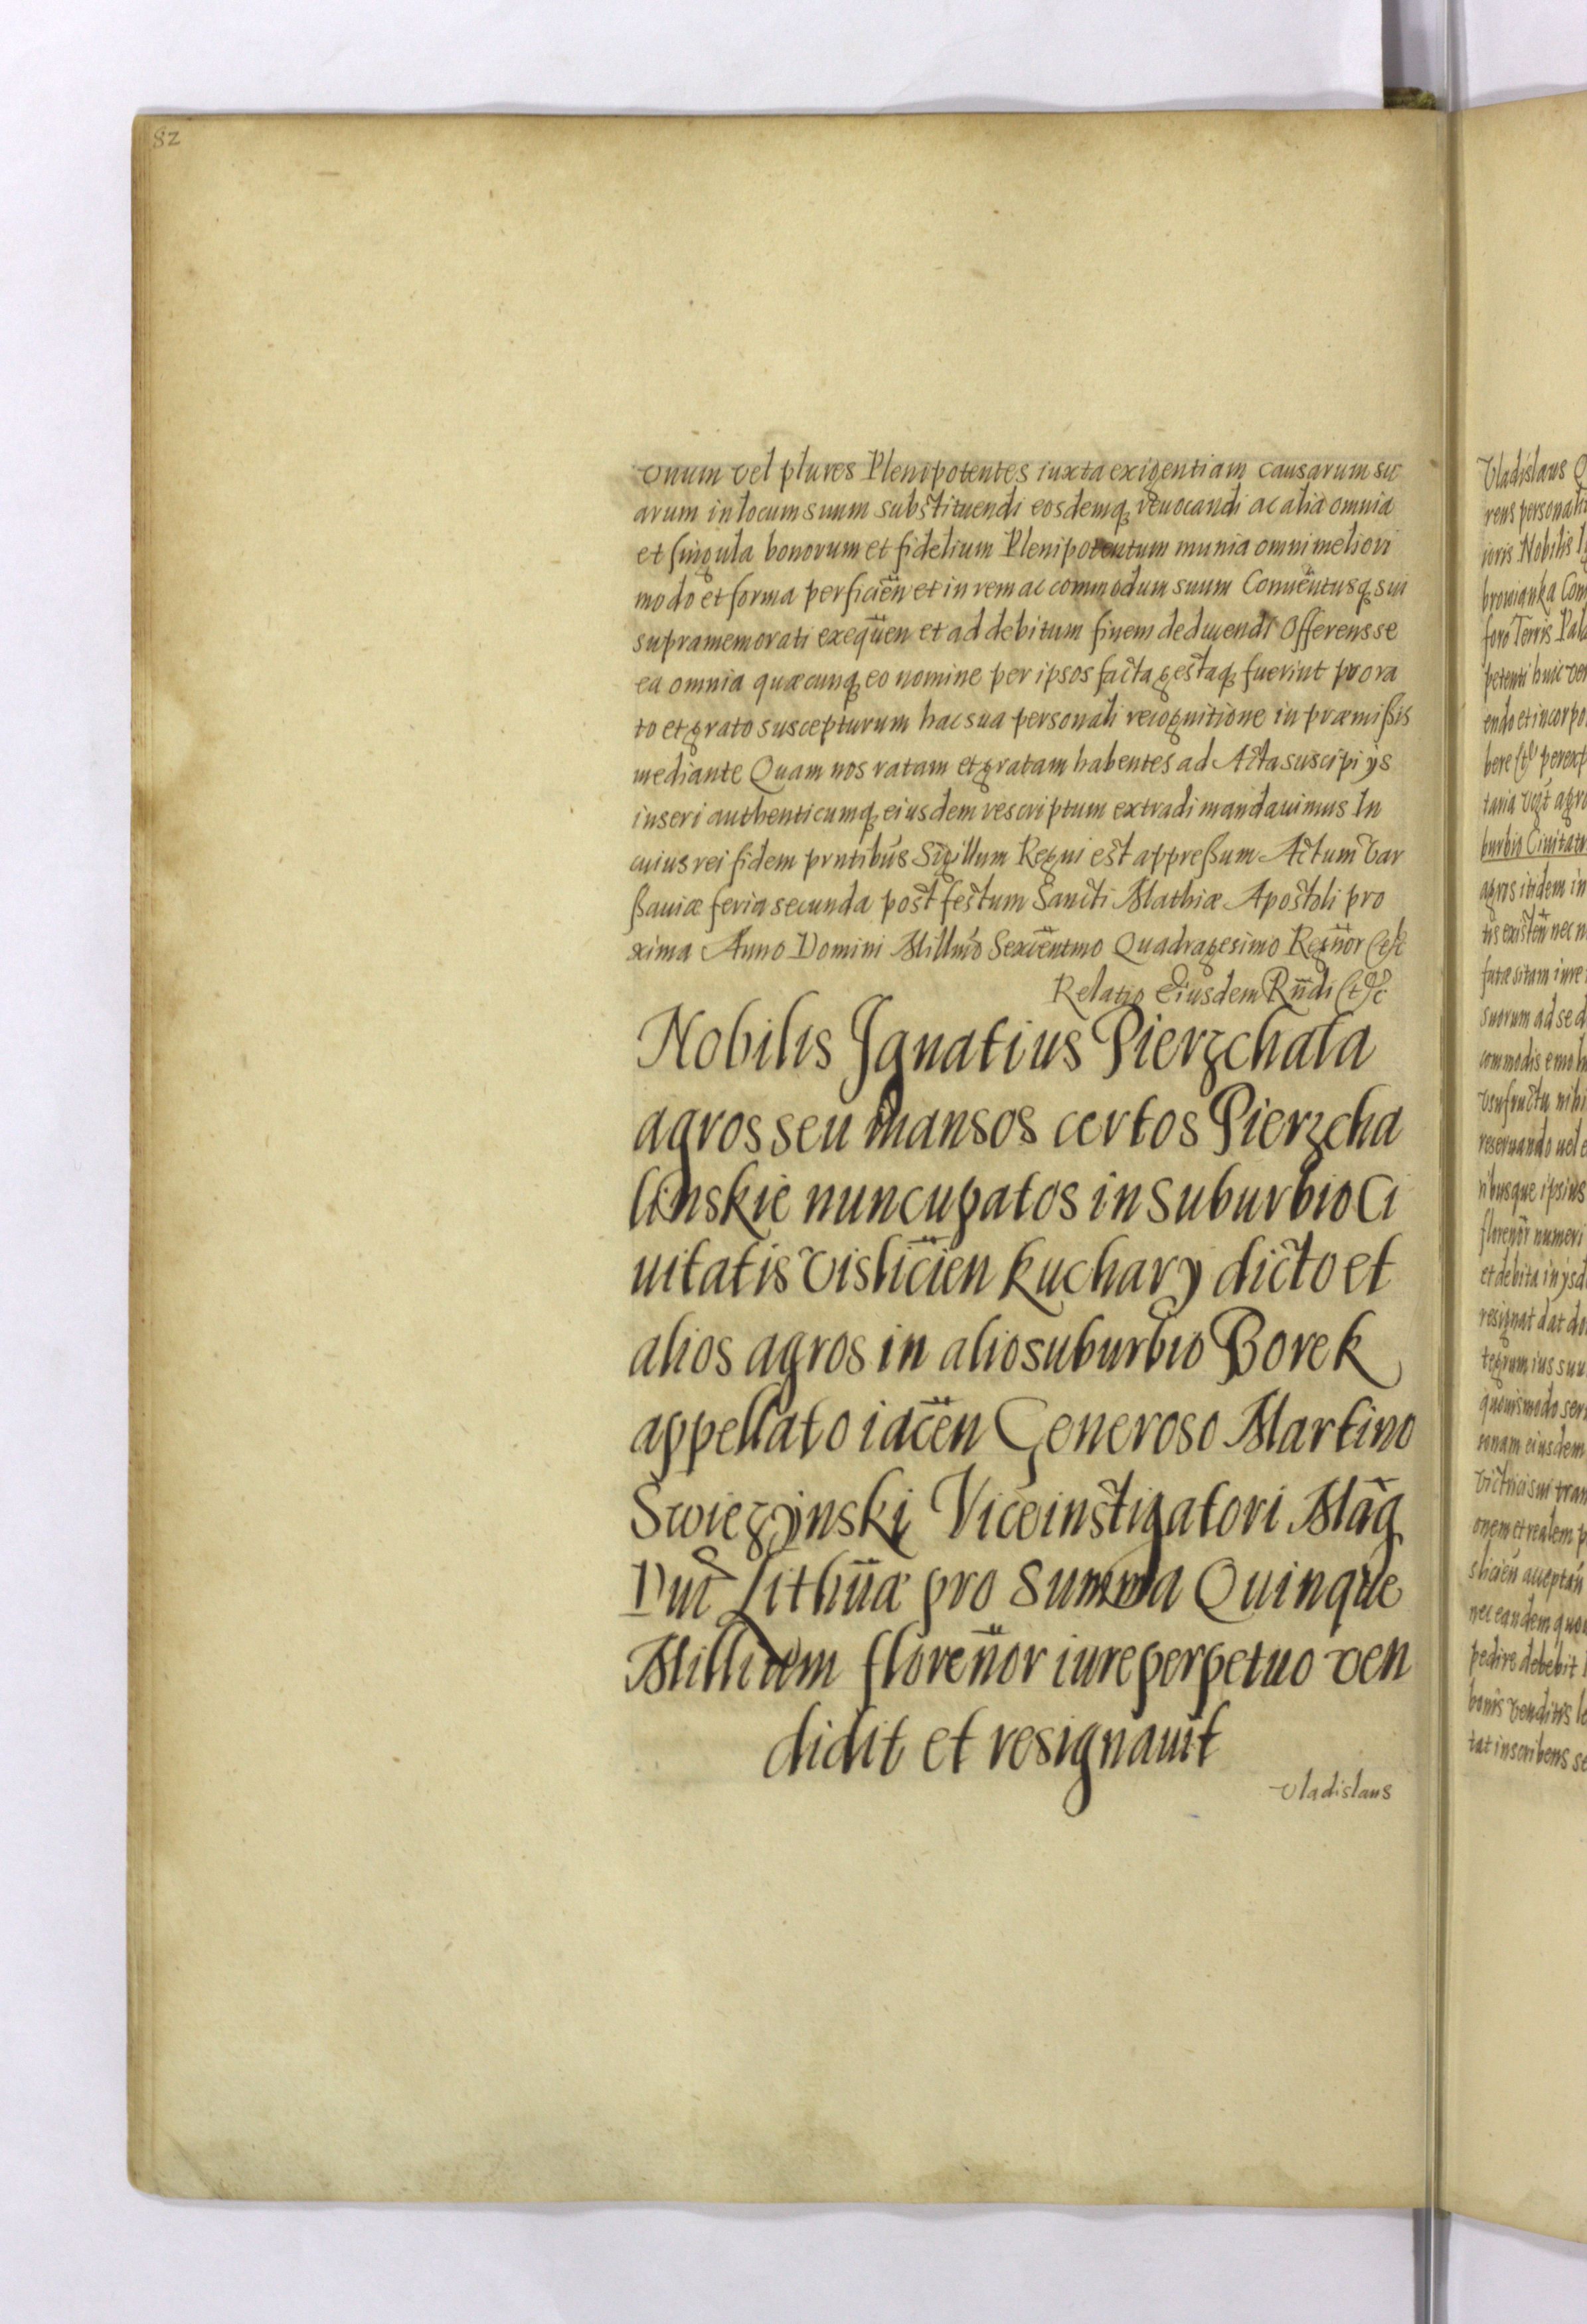 82
vnum vel plures Plenipotentes iuxta exigentiam causarum su
arum in locum suum substituendi eosdemq, reuocandi ac alia omnia
et singula bonorum et fidelium Plenipotentum munia omni meliori
modo et forma perficien̄ et in rem ac commodum suum Conuentusq, sui
supramemorati exequen̄ et ad debitum finem deducendi Offerens se
ea omnia quæcunq, eo nomine per ipsos facta gestaq, fuerint pro ra
to et grato suscepturum hac sua personali recognitione in præmißis
mediante Quam nos ratam et gratam habentes ad Acta suscipi ÿs
inseri authenticumq, eiusdem rescriptum extradi mandauimus In
cuius rei fidem prntibus Sigillum Regni est appreßum Actum Var
ßauiæ feria secunda post festum Sancti Mathiæ Apostoli pro
xima Anno Domini Millmo Sexcentmo Quadragesimo Regnor̄ etc
Relatio Eiusdem Rn̄di etc
Nobilis Ignatius Pierzchała
agros seu mansos certos Pierzcha
linskie nuncupatos in suburbio Ci
uitatis Vislicien̄ Kuchary dicto et
alios agros in alio suburbio Borek
appellato iacen̄ Generoso Martino
Swiezÿnski Viceinstigatori Mag
Duc Lithūa pro Summa Quinque
Millium floren̄or iure perpetuo ven
didit et resignauit
Vladislaus
Vladislaus
rens personali
ioris Nobilis
browianka Com
foro Terris Pala
petenti huic
endo et incorpo
bere
taria
burbio Ciuitati
agros itidem in
tis existen̄ nec
sitam iure
suorum ad se
commodis emol
vsufructu nihi
reseruando uel
nbusque ipsius
floren̄or numeri
et debita in ysd
resignat dat do
tegrum ius suu
quouismodo ser
sonam eiusdem
tran
onem et realem p
slicien̄ acceptan̄
nec eandem quo
pedire debebit
bonis venditis
tat inscribens se